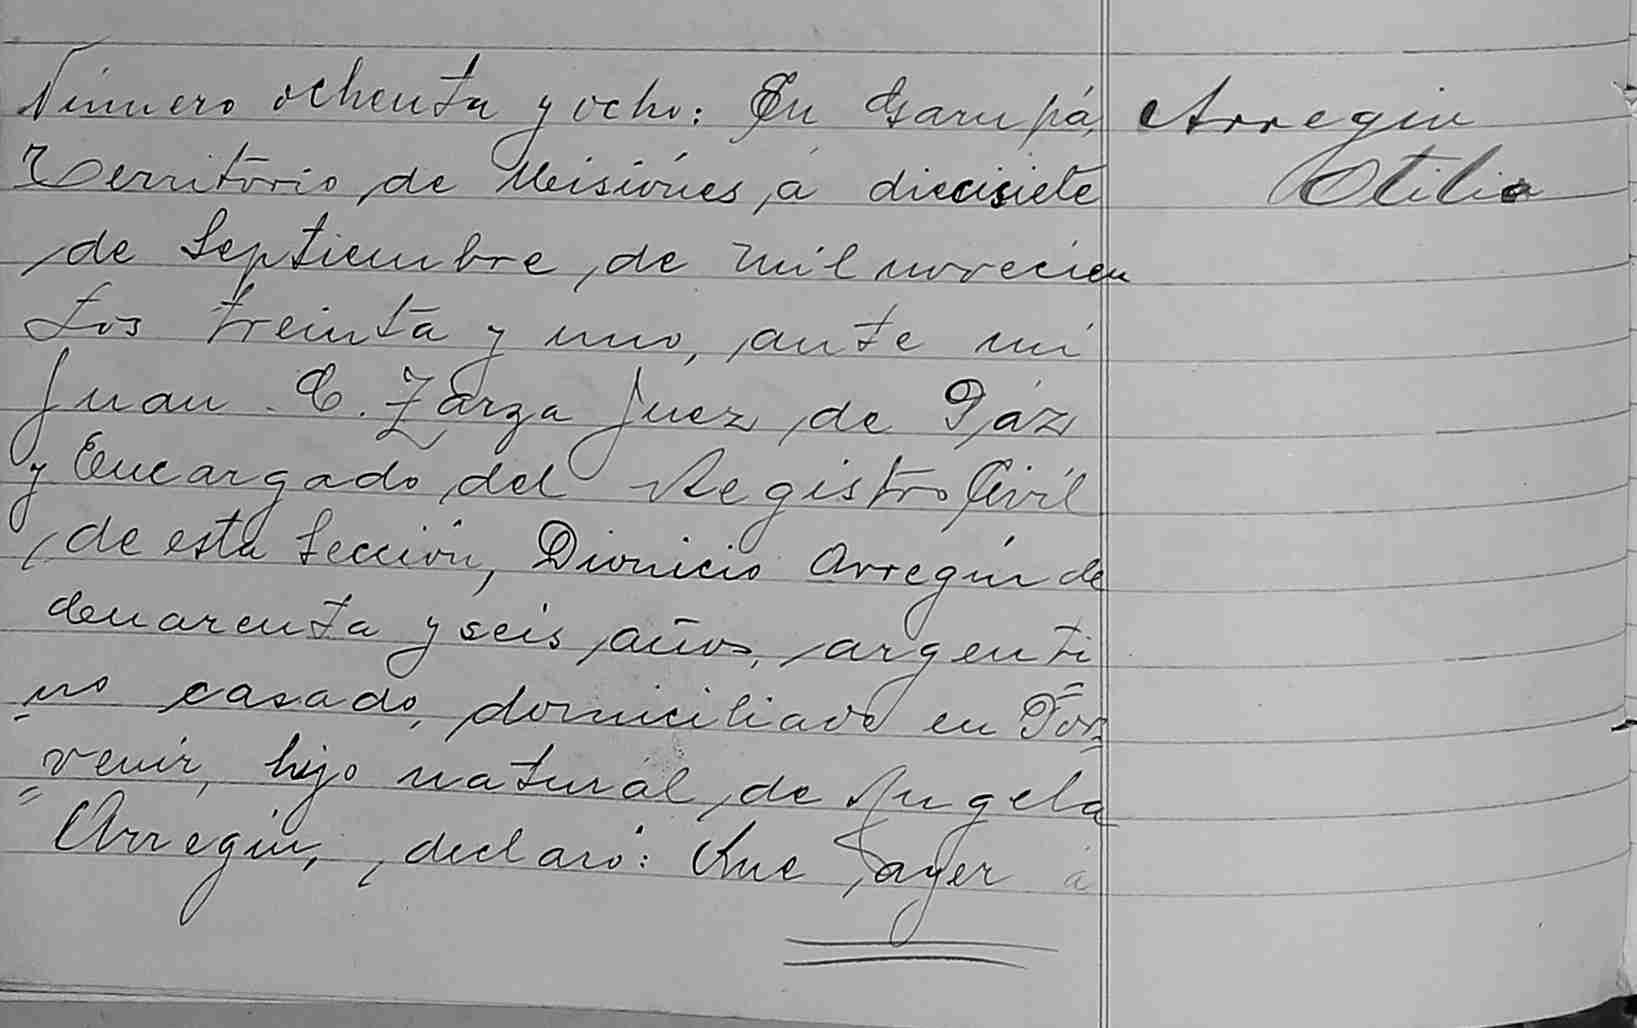 Número ochenta y ocho: En Garupá,
Territorio de Misiónes, á diecisiete
de Septiembre, de mil novecien
tos treinta y uno, ante mí
Juan C. Zarza Juez de Páz
y Encargado del Registro Civil
de esta Sección, Dionicio Arreguin de
cuarenta y seis años, argenti
no casado, domiciliado en Por=
=venir, hijo natural de Angela
Arreguin, declaró: Que ayer á
Arreguin
Otilia